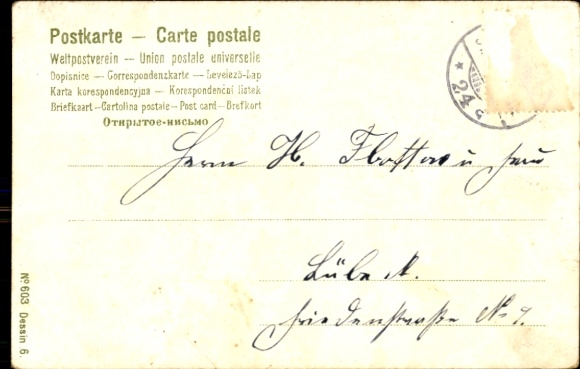 Postkarte — Carte postale
Weltpostverein — Union postale universelle
Dopisnice — Correspondenzkarte — Levelezö-Lap
Karta korespondencyjna — Korespondenční listek
Briefkaart — Cartolina postale — Post card — Brefkort
Открытое-письмо
24
Herrn H. Flottau u Frau
Lübeck.
Friedenstraße No 7.
No 603 Dessin 6.